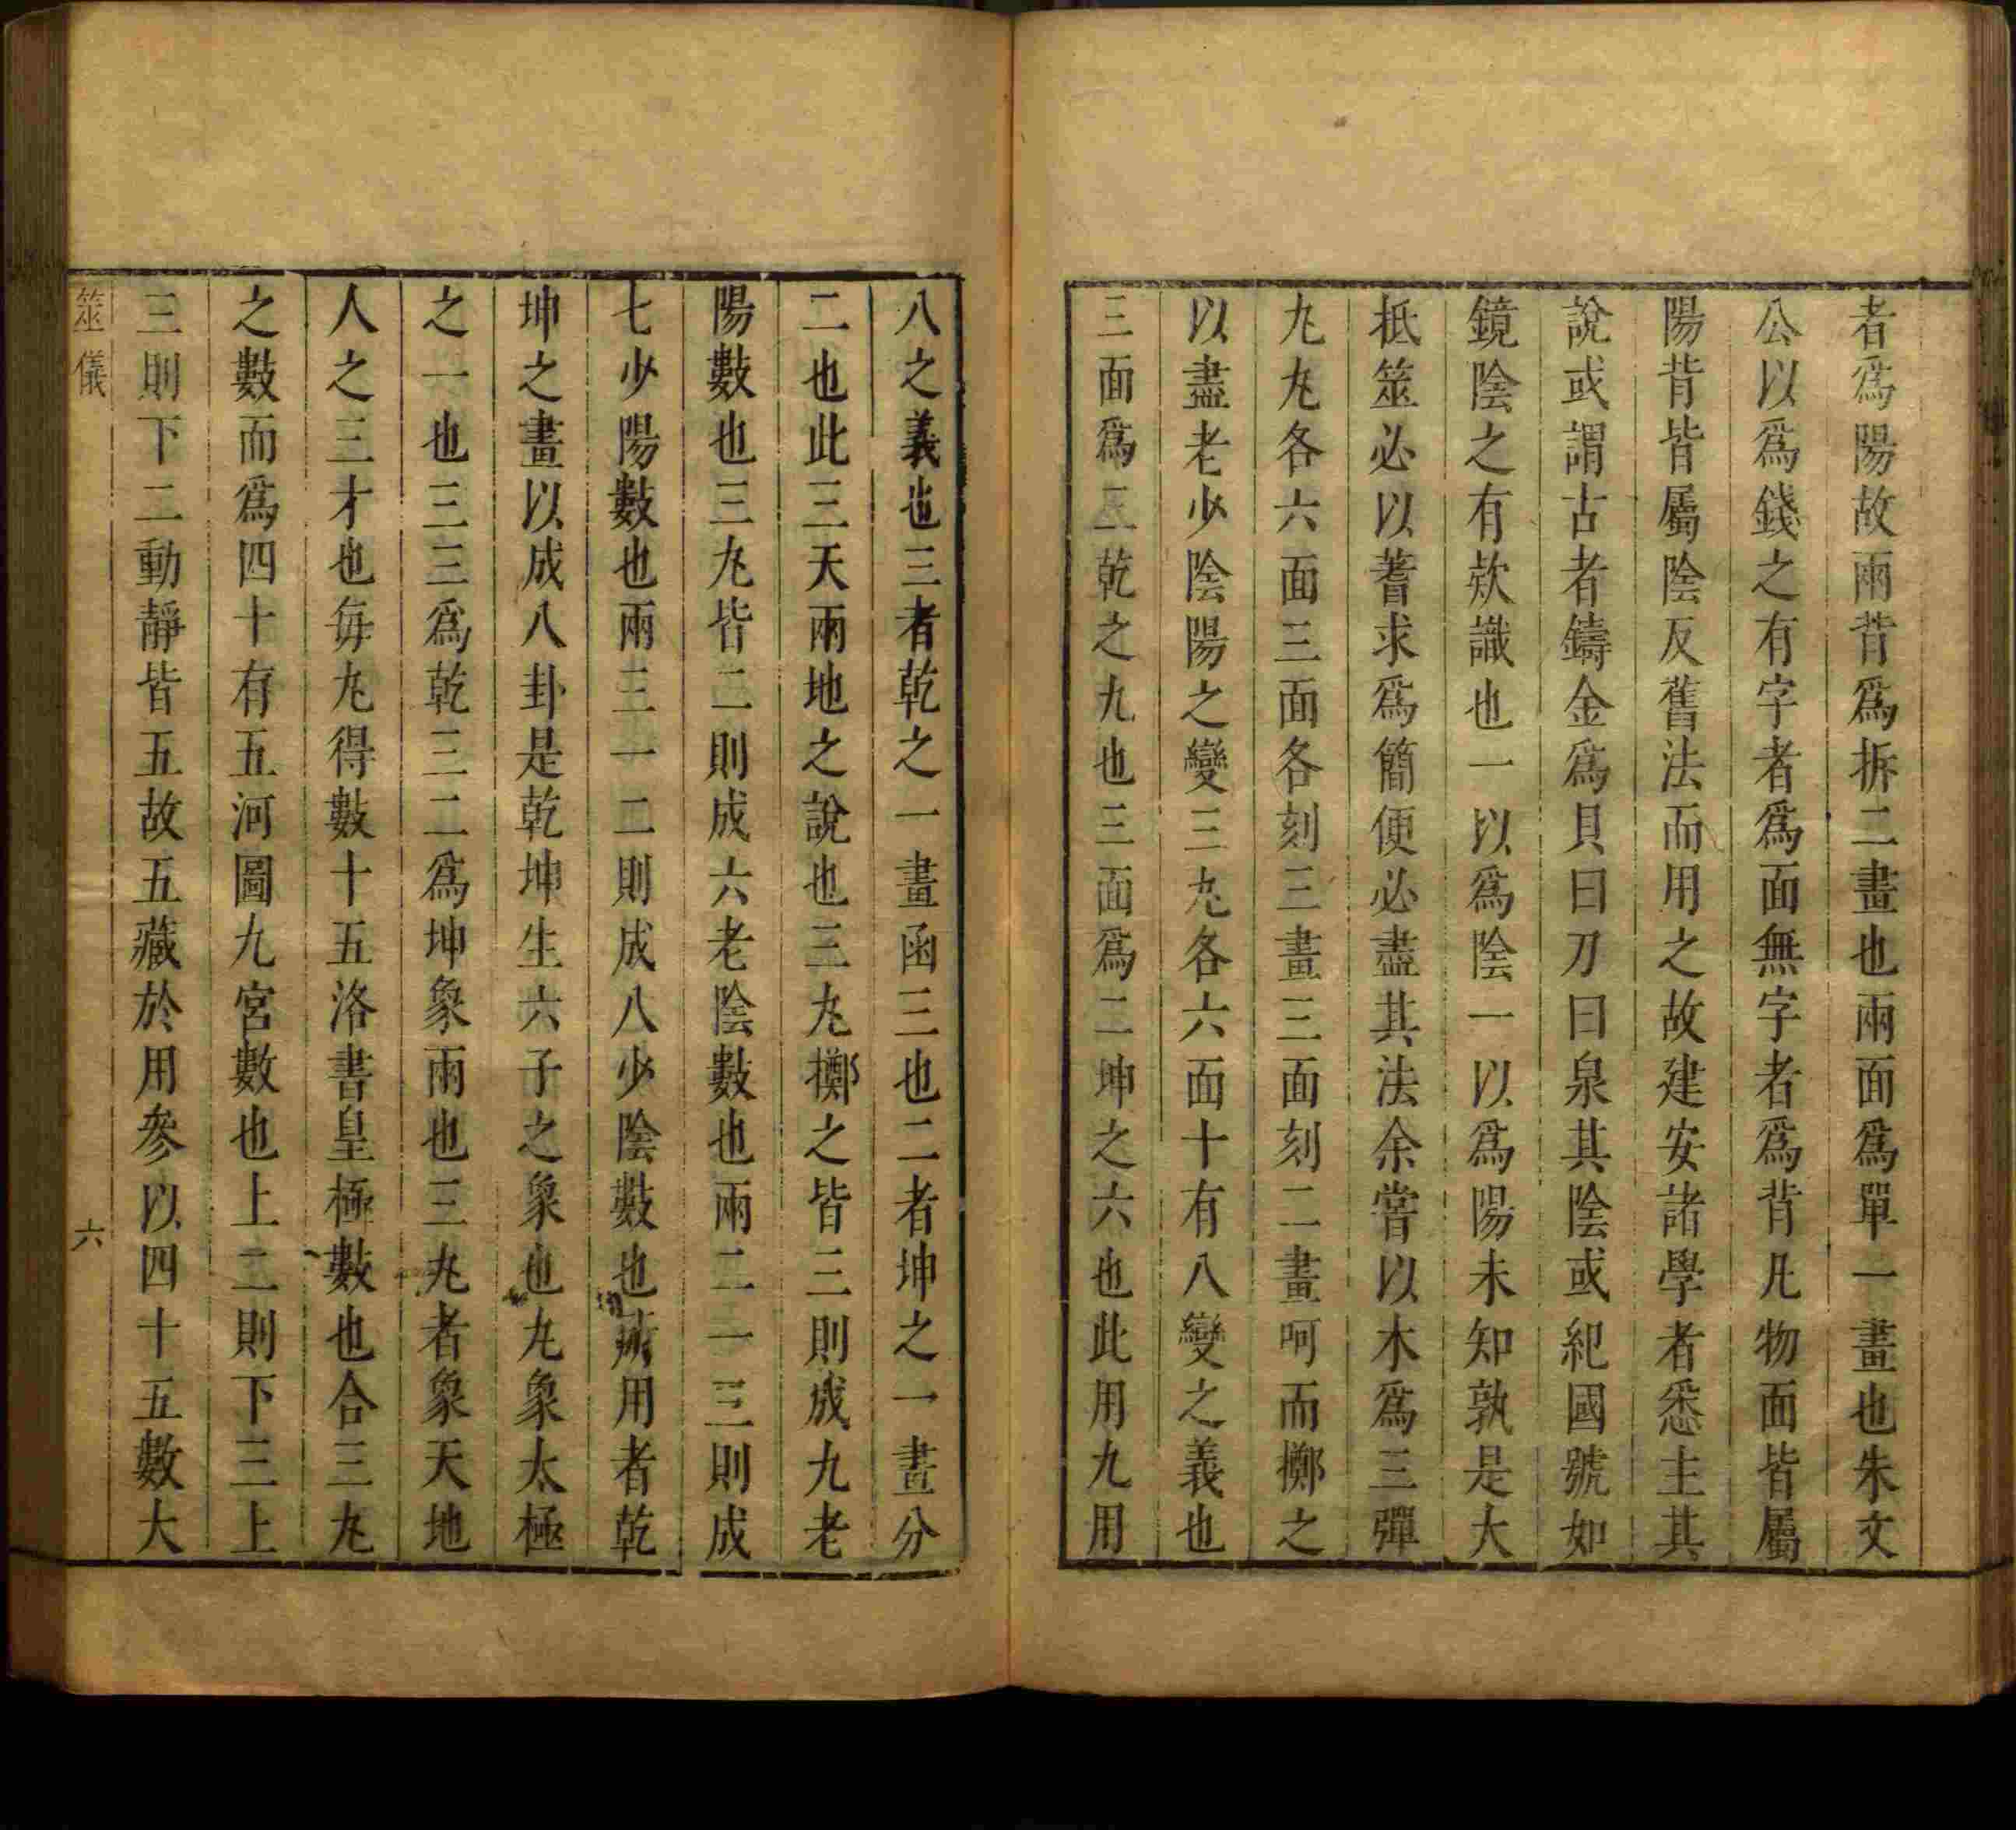 者爲陽故兩背爲拆二畫也兩面爲單一畫也朱文
公以爲錢之有字者爲面無字者爲背凡物面皆屬
陽背皆屬陰反舊法而用之故建安諸學者悉主其
說或謂古者鑄金爲貝曰刀曰泉其陰或紀國號如
鏡陰之有欵識也一以爲陰一以爲陽未知孰是大
抵筮必以蓍求爲簡便必盡其法余嘗以木爲三彈
丸丸各六面三面各刻三畫三面刻二畫呵而擲之
以盡老少陰陽之變三丸各六面十有八變之義也
三面爲三乾之九也三面爲二坤之六也此用九用
八之義也三者乾之一畫函三也二者坤之一畫分
二也此三天兩地之說也三丸擲之皆三則成九老
陽數也三丸皆二則成六老陰數也兩二一三則成
七少陽數也兩三一二則成八少陰數也所用者乾
坤之畫以成八卦是乾坤生六子之象也丸象太極
之一也三三爲乾三二爲坤象兩也三丸者象天地
人之三才也每丸得數十五洛書皇極數也合三丸
之數而爲四十有五河圖九宮數也上二則下三上
三則下二動靜皆五故五藏於用參以四十五數大
筮儀
六